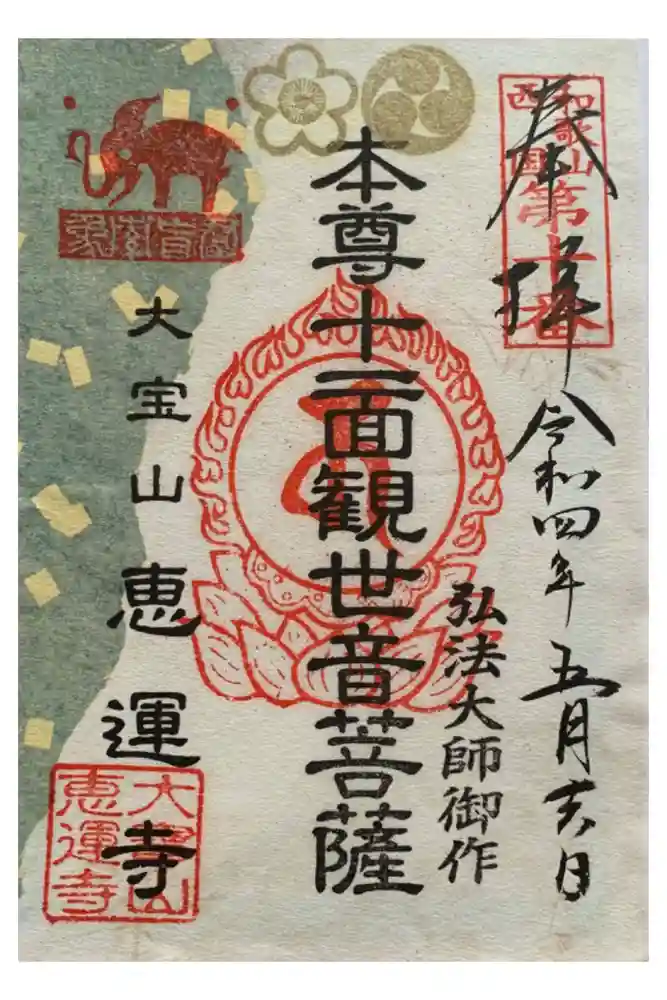 和歌山
西国
第十番
奉拝
令和四年五月十六日
弘法大師御作
本尊十一面観世音菩薩
大宝山
恵運寺
大寶山
恵運寺